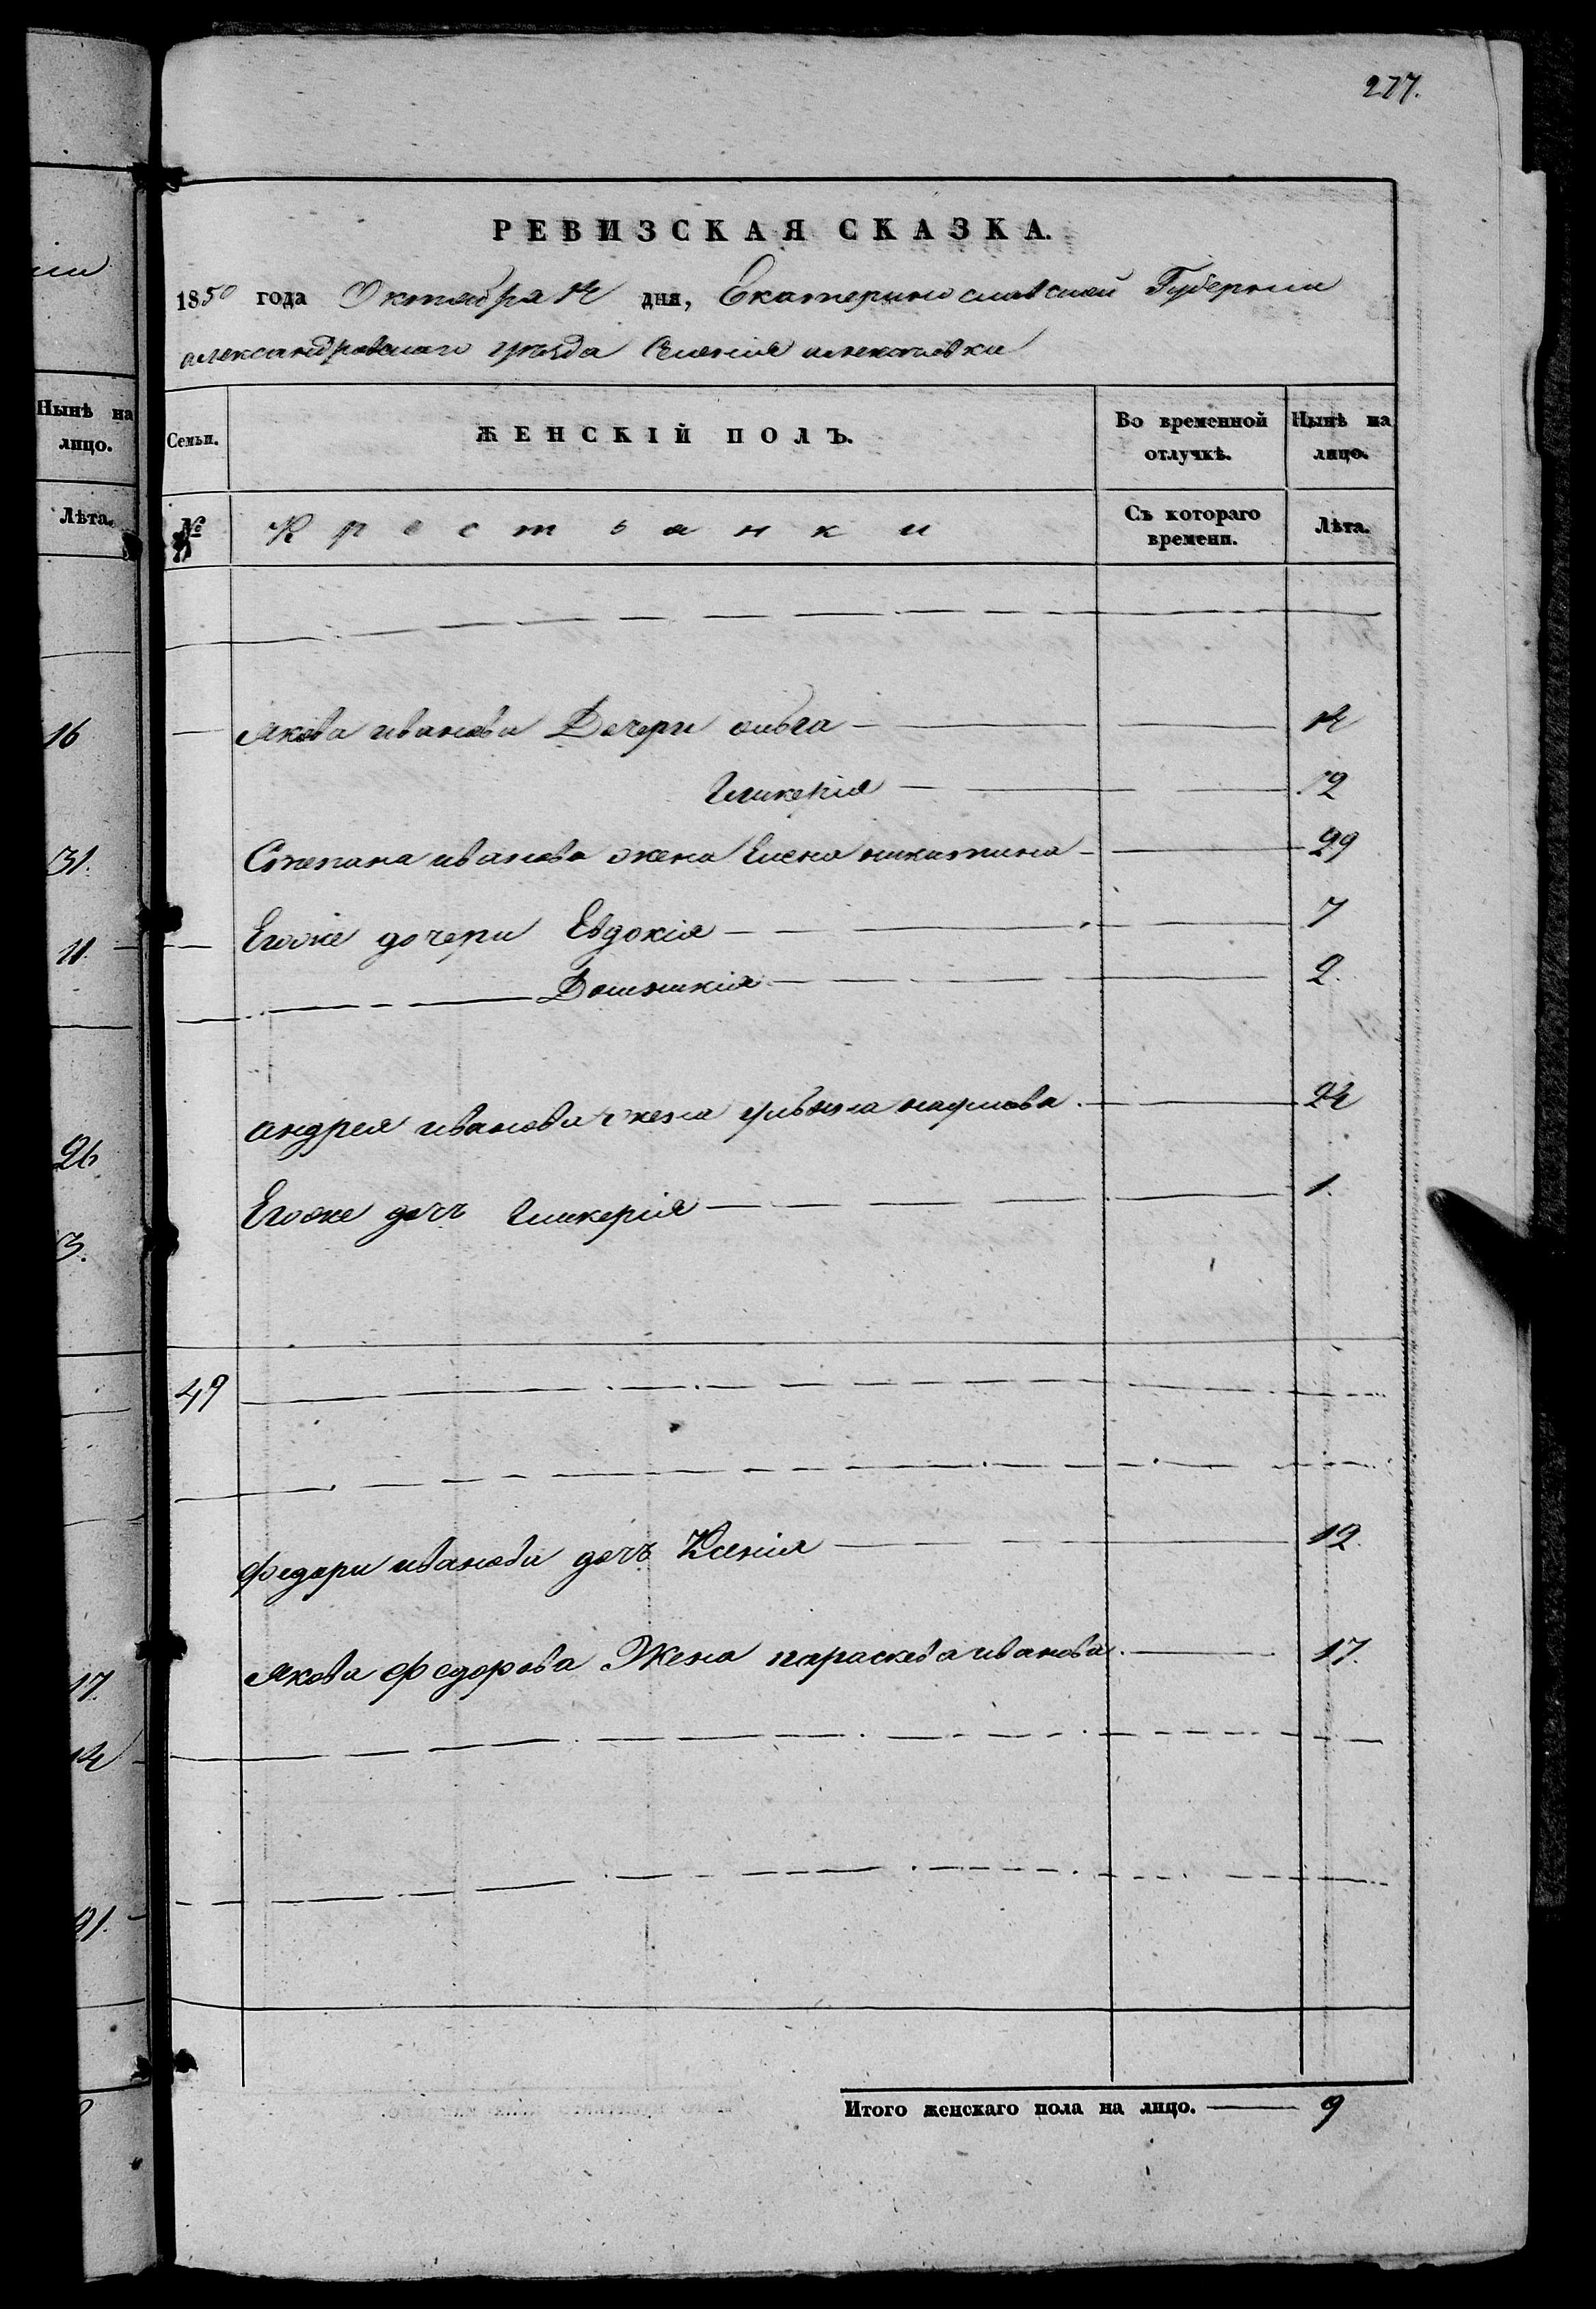 277.
РЕВИЗСКАЯ СКАЗКА.
1850 года Октября 14 дня, Екатеринославской Губернии
александровскаго уѣзда Селенія алексѣевки
Нынѣ на лицо.
Лѣта.
16
31.
11.
26
3.
17.
14
21.
Семьи. ЖЕНСКІЙ ПОЛЪ. Во временной отлучкѣ. Нынѣ на лицо.
№ Крестьянки Съ котораго времени. Лѣта.
Якова иванова Дочери ольга 14
Гликерія 12
Степана иванова жена Елена никитина 29
Егоже дочери Евдокія 7
Домникія 2.
андрея иванова жена ульяна наумова 24
Егоже дочь Гликерія 1.
49
Федора иванова дочь Ксенія 12.
Якова Федорова Жена параскева иванова 17.
Итого женскаго пола на лицо. 9